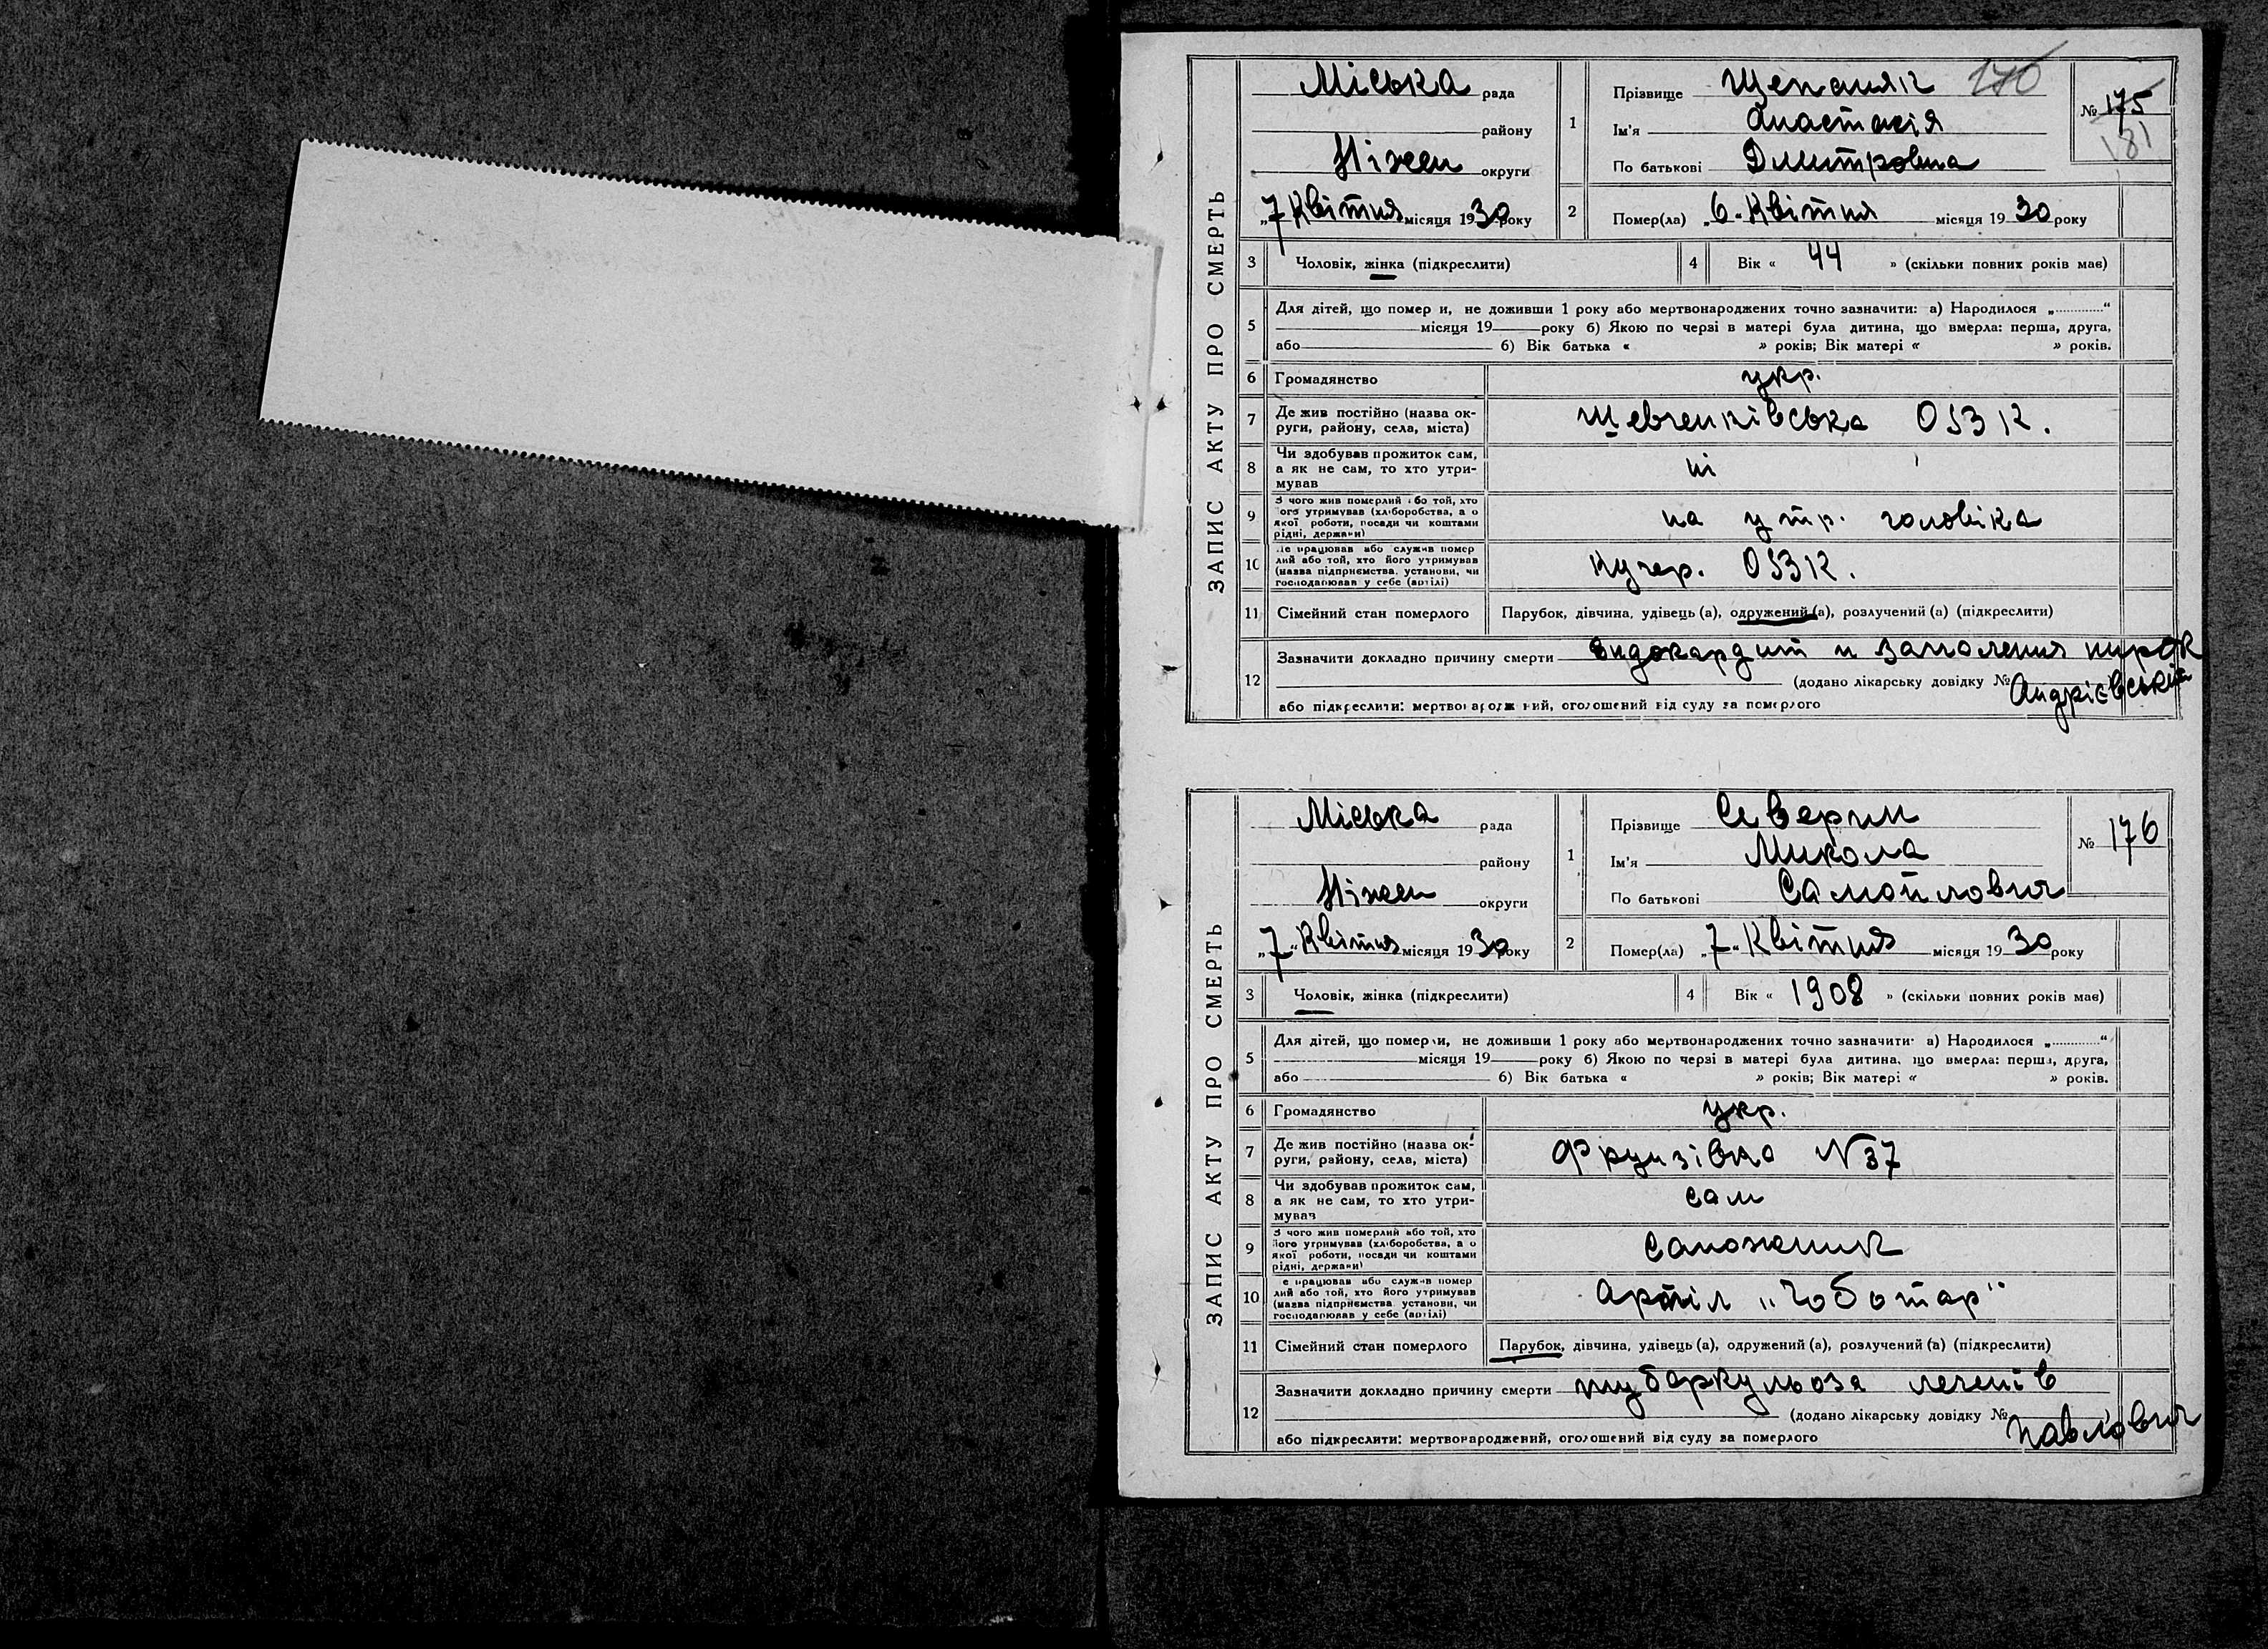 ЗАПИС АКТУ ПРО СМЕРТЬ
Міська рада
району
Ніжен округи
„7 Квітня місяця 1930 року
1
Прізвище Щепаняк 170
Ім'я Анастасія
По батькові Дмитровна
№ 175
181
2
Помер(ла) „6" Квітня місяця 1930 року
3 Чоловік, жінка (підкреслити)
4 Вік « 44 » (скільки повних років має)
5 Для дітей, що помер и, не доживши 1 року або мертвонароджених точно зазначити: а) Народилося „............"
місяця 19 року б) Якою по черзі в матері була дитина, що вмерла: перша, друга,
або 6) Вік батька « » років; Вік матері « » років.
6 Громадянство укр.
7 Де жив постійно (назва ок-
руги, району, села, міста) Шевченківська
8 Чи здобував прожиток сам,
а як не сам, то хто утри-
мував ні
9 З чого жив померлий або той, хто
його утримував (хліборобства, а о
якої роботи, посади чи коштами
рідні, держави) на утр. чоловіка
10 Де працював або служив помер
лий або той, хто його утримував
(назва підприємства, установи, чи
господарював у себе (артілі) Кучер.
11 Сімейний стан померлого Парубок, дівчина, удівець (а), одружений (а), розлучений (а) (підкреслити)
12 Зазначити докладно причину смерти Ендокардит и запалення нирок
(додано лікарську довідку № Андрієвський
або підкреслити: мертвонароджений, оголошений від суду за померлого
ЗАПИС АКТУ ПРО СМЕРТЬ
Міська рада
району
Ніжен округи
„7" Квітня місяця 1930 року
1
Прізвище Северин
Ім'я Микола
По батькові Самойлович
№ 176
2
Помер(ла) „7" Квітня місяця 1930 року
3 Чоловік, жінка (підкреслити)
4 Вік « 1908 » (скільки повних років має)
5 Для дітей, що померли, не доживши 1 року або мертвонароджених точно зазначити: а) Народилося „............"
місяця 19 року б) Якою по черзі в матері була дитина, що вмерла: перша, друга,
або 6) Вік батька « » років; Вік матері « » років.
6 Громадянство укр.
7 Де жив постійно (назва ок-
руги, району, села, міста) Фрунзівка N 37
8 Чи здобував прожиток сам,
а як не сам, то хто утри-
мував сам
9 З чого жив померлий або той, хто
його утримував (хліборобства, а о
якої роботи, посади чи коштами
рідні, держави) Сапожник
10 е працював або служив помер
лий або той, хто його утримував
(назва підприємства, установи, чи
господарював у себе (артілі) Артіл „Чоботар"
11 Сімейний стан померлого Парубок, дівчина, удівець (а), одружений (а), розлучений (а) (підкреслити)
12 Зазначити докладно причину смерти туберкульоза легенів
(додано лікарську довідку № Павлович
або підкреслити: мертвонароджений, оголошений від суду за померлого